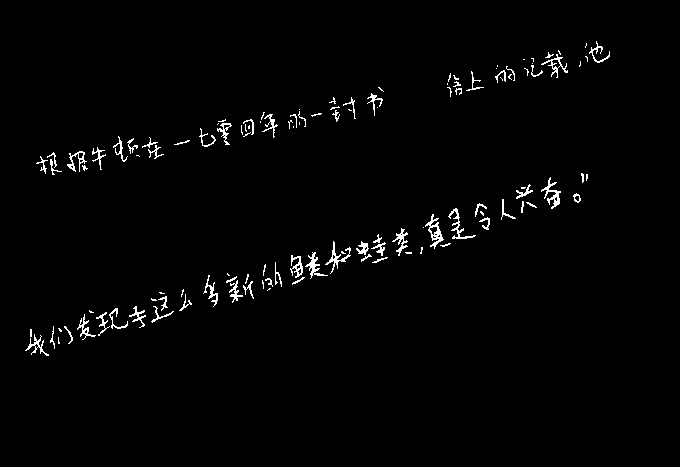 根据牛顿在一七零四年的一封书信上的记载,他
我们发现了这么多新的鱼类和蛙类,真是令人兴奋。”